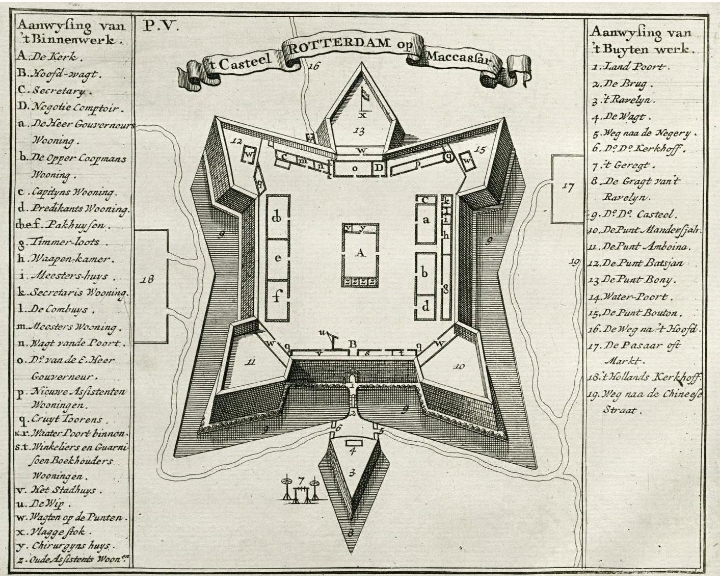 Aanwysing van
't Binnenwerk.
A. De Kerk.
B. Hoofd-wagt.
C. Secretary.
D. Negotie Comptoir.
a. De Heer Gouverneurs
Wooning.
b. De Opper Coopmans
Wooning.
c. Capityns Wooning.
d. Predikants Wooning.
d.e.f. Pakhuysen.
g. Timmer-loots.
h. Waapen-kamer.
i. Meesters-huys.
k. Secretaris Wooning.
l. De Combuys.
m. Meesters Wooning.
n. Wagt vande Poort.
o. Do. van de E. Heer
Gouverneur.
p. Nieuwe Assistenten
Wooningen.
q. Cruyt Toorens.
r. Waater Poort binnen.
s.t. Winkeliers en Guarni
soen Boekhouders
Wooningen.
v. Het Stadhuys.
u. De Wip.
w. Wagten op de Punten.
x. Vlagge stok.
y. Chirurgyns huys.
z. Oude Assistents Woon.en
P.V.
't Casteel ROTTERDAM op Maccassar.
16
x
13
12
15
w
w
w
c
m
n
z
o
D
p
q
b
e
f
y
y
A
c
k
a
i
h
b
d
g
9
9
17
18
19
u
B
v
s
t
q
w
w
11
10
1
2
9
9
6
5
4
3
7
8
Aanwysing van
't Buyten werk.
1. Land Poort.
2. De Brug.
3. 't Ravelyn.
4. De Wagt.
5. Weg naa de Negery.
6. Do. Do. Kerkhoff.
7. 't Geregt.
8. De Gragt van't
Ravelyn.
9. Do. Do. Casteel.
10. De Punt Mandersjah.
11. De Punt Amboina.
12. De Punt Batsjan
13. De Punt Bony.
14. Water-Poort.
15. De Punt Bouton.
16. De Weg na't Hoofd.
17. De Pasaar oft
Markt.
18. 't Hollands Kerkhoff.
19. Weg naa de Chineese
Straat.